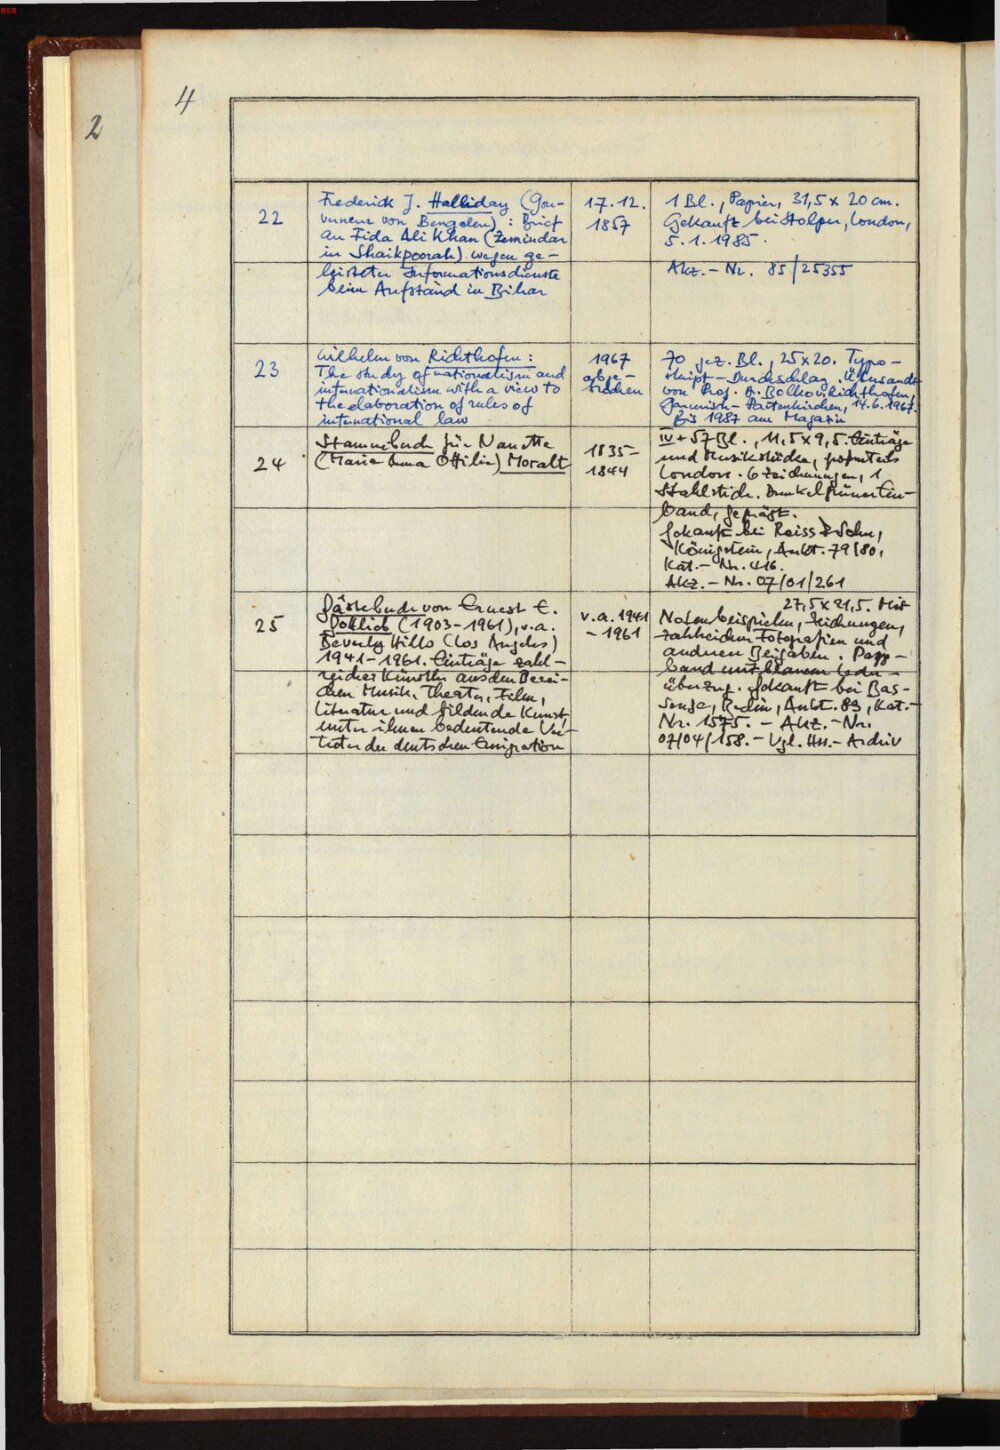 BSB
4
2
22
Frederick J. Halliday (Gou-
verneur von Bengalen): Brief
an Fida Ali Khan (Zemindar
in Shaikpoorah) wegen ge-
leisteter Informationsdienste
beim Aufstand in Bihar
17.12.
1857
1 Bl., Papier, 31,5 x 20 cm.
Gekauft bei Stolper, London,
5.1.1985.
Akz.-Nr. 85/25355
23
Wilhelm von Richthofen:
The study of nationalism and
internationalism with a view to
the elaboration of rules of
international law
1967
abge-
trieben
70 gez. Bl., 25 x 20. Typo-
skript-Durchschlag. Übersandt
von Prof. B. Bolko v. Richthofen,
Garmisch-Partenkirchen, 14.6.1967.
Bis 1987 am Magazin
24
Stammbuch für Nanette
(Maria Anna Ottilia) Moralt
1835-
1844
IV + 57 Bl., 11,5 x 9,5. Einträge
und Musikstücke, großenteils
London. 6 Zeichnungen, 1
Stahlstich. Dunkelgrüner Ein-
band, geprägt.
Gekauft bei Reiss & Sohn,
Königstein, Aukt. 79/80,
Kat.-Nr. 416.
Akz.-Nr. 07/01/261
25
Gästebuch von Ernest E.
Gottlieb (1903-1961), v.a.
Beverly Hills (Los Angeles)
1941-1961. Einträge zahl-
reicher Künstler aus den Berei-
chen Musik, Theater, Film,
Literatur und bildende Kunst,
unter ihnen bedeutende Ver-
treter der deutschen Emigration
v.a. 1941
-1961
27,5 x 21,5. Mit
Notenbeispielen, Zeichnungen,
zahlreichen Fotografien und
anderen Beigaben. Papp-
band mit blauem Leder-
überzug. Gekauft bei Bas-
senge, Berlin, Aukt. 89, Kat.-
Nr. 1575. - Akz.-Nr.
07/04/158. - Vgl. Hss.-Archiv